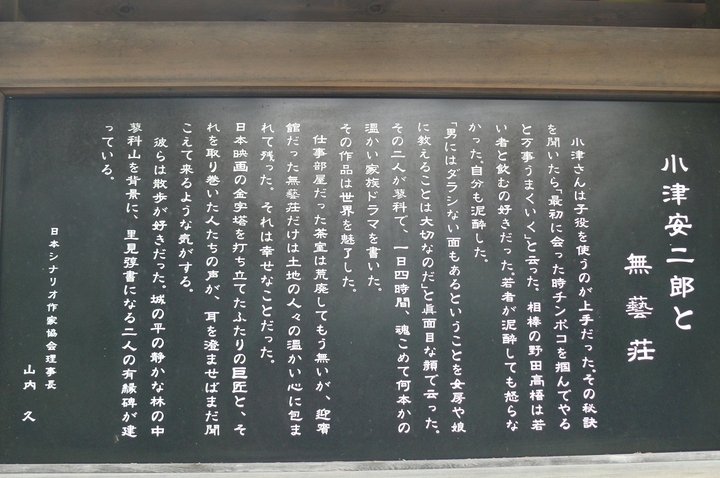 小津安二郎と
無藝荘
小津さんは子役を使うのが上手だった。その秘訣
を聞いたら「最初に会った時チンポコを掴んでやる
と万事うまくいく」と云った。相棒の野田高梧は若
い者と飲むの好きだった。若者が泥酔しても怒らな
かった。自分も泥酔した。
「男にはダラシない面もあるということを女房や娘
に教えることは大切なのだ」と眞面目な顔で云った。
その二人が蓼科で、一日四時間、魂こめて何本かの
温かい家族ドラマを書いた。
その作品は世界を魅了した。
仕事部屋だった茶室は荒廃してもう無いが、迎賓
館だった無藝荘だけは土地の人々の温かい心に包ま
れて残った。それは幸せなことだった。
日本映画の金字塔を打ち立てたふたりの巨匠と、そ
れを取り巻いた人たちの声が、耳を澄ませばまだ聞
こえて来るような気がする。
彼らは散歩が好きだった。城の平の静かな林の中
蓼科山を背景に、里見弴書になる二人の有縁碑が建
っている。
日本シナリオ作家協会理事長
山内久